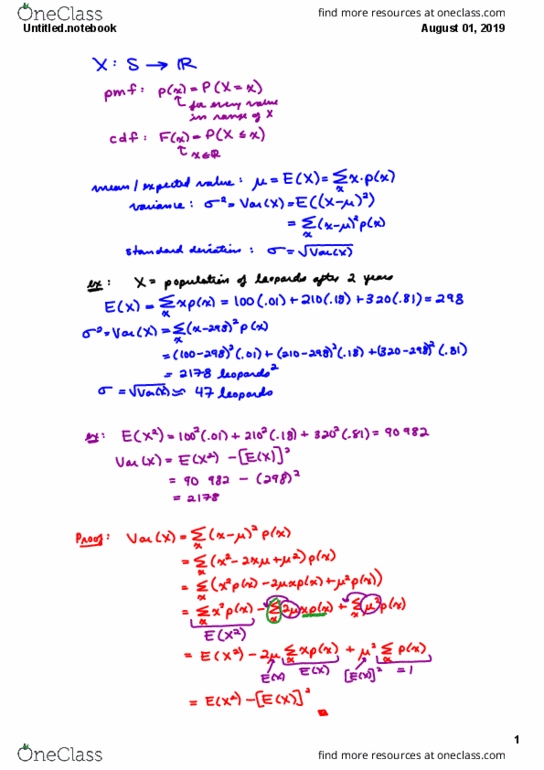 OneClass
find more resources at oneclass.com
Untitled.notebook
August 01, 2019
X : S → ℝ
pmf : p(x) = P(X = x)
for every value
in range of X
cdf : F(x) = P(X ≤ x)
x∈ℝ
mean / expected value : μ = E(X) = Σₓ x·p(x)
variance : σ² = Var(X) = E((X-μ)²)
= Σₓ (x-μ)² p(x)
standard deviation : σ = √Var(X)
ex : X = population of leopards after 2 years
E(X) = Σₓ xp(x) = 100(.01) + 210(.18) + 320(.81) = 298
σ² = Var(X) = Σₓ (x-298)² p(x)
= (100-298)² (.01) + (210-298)² (.18) + (320-298)² (.81)
= 2178 leopards²
σ = √Var(X) ≈ 47 leopards
ex : E(X²) = 100²(.01) + 210²(.18) + 320²(.81) = 90 982
Var(X) = E(X²) - [E(X)]²
= 90 982 - (298)²
= 2178
Proof : Var(X) = Σₓ (x-μ)² p(x)
= Σₓ (x² - 2xμ + μ²) p(x)
= Σₓ (x² p(x) - 2μxp(x) + μ² p(x))
= Σₓ x² p(x) - Σₓ 2μxp(x) + Σₓ μ² p(x)
E(X²)
= E(X²) - 2μ Σₓ xp(x) + μ² Σₓ p(x)
E(X) E(X) [E(X)]² = 1
= E(X²) - [E(X)]²
1
OneClass
find more resources at oneclass.com